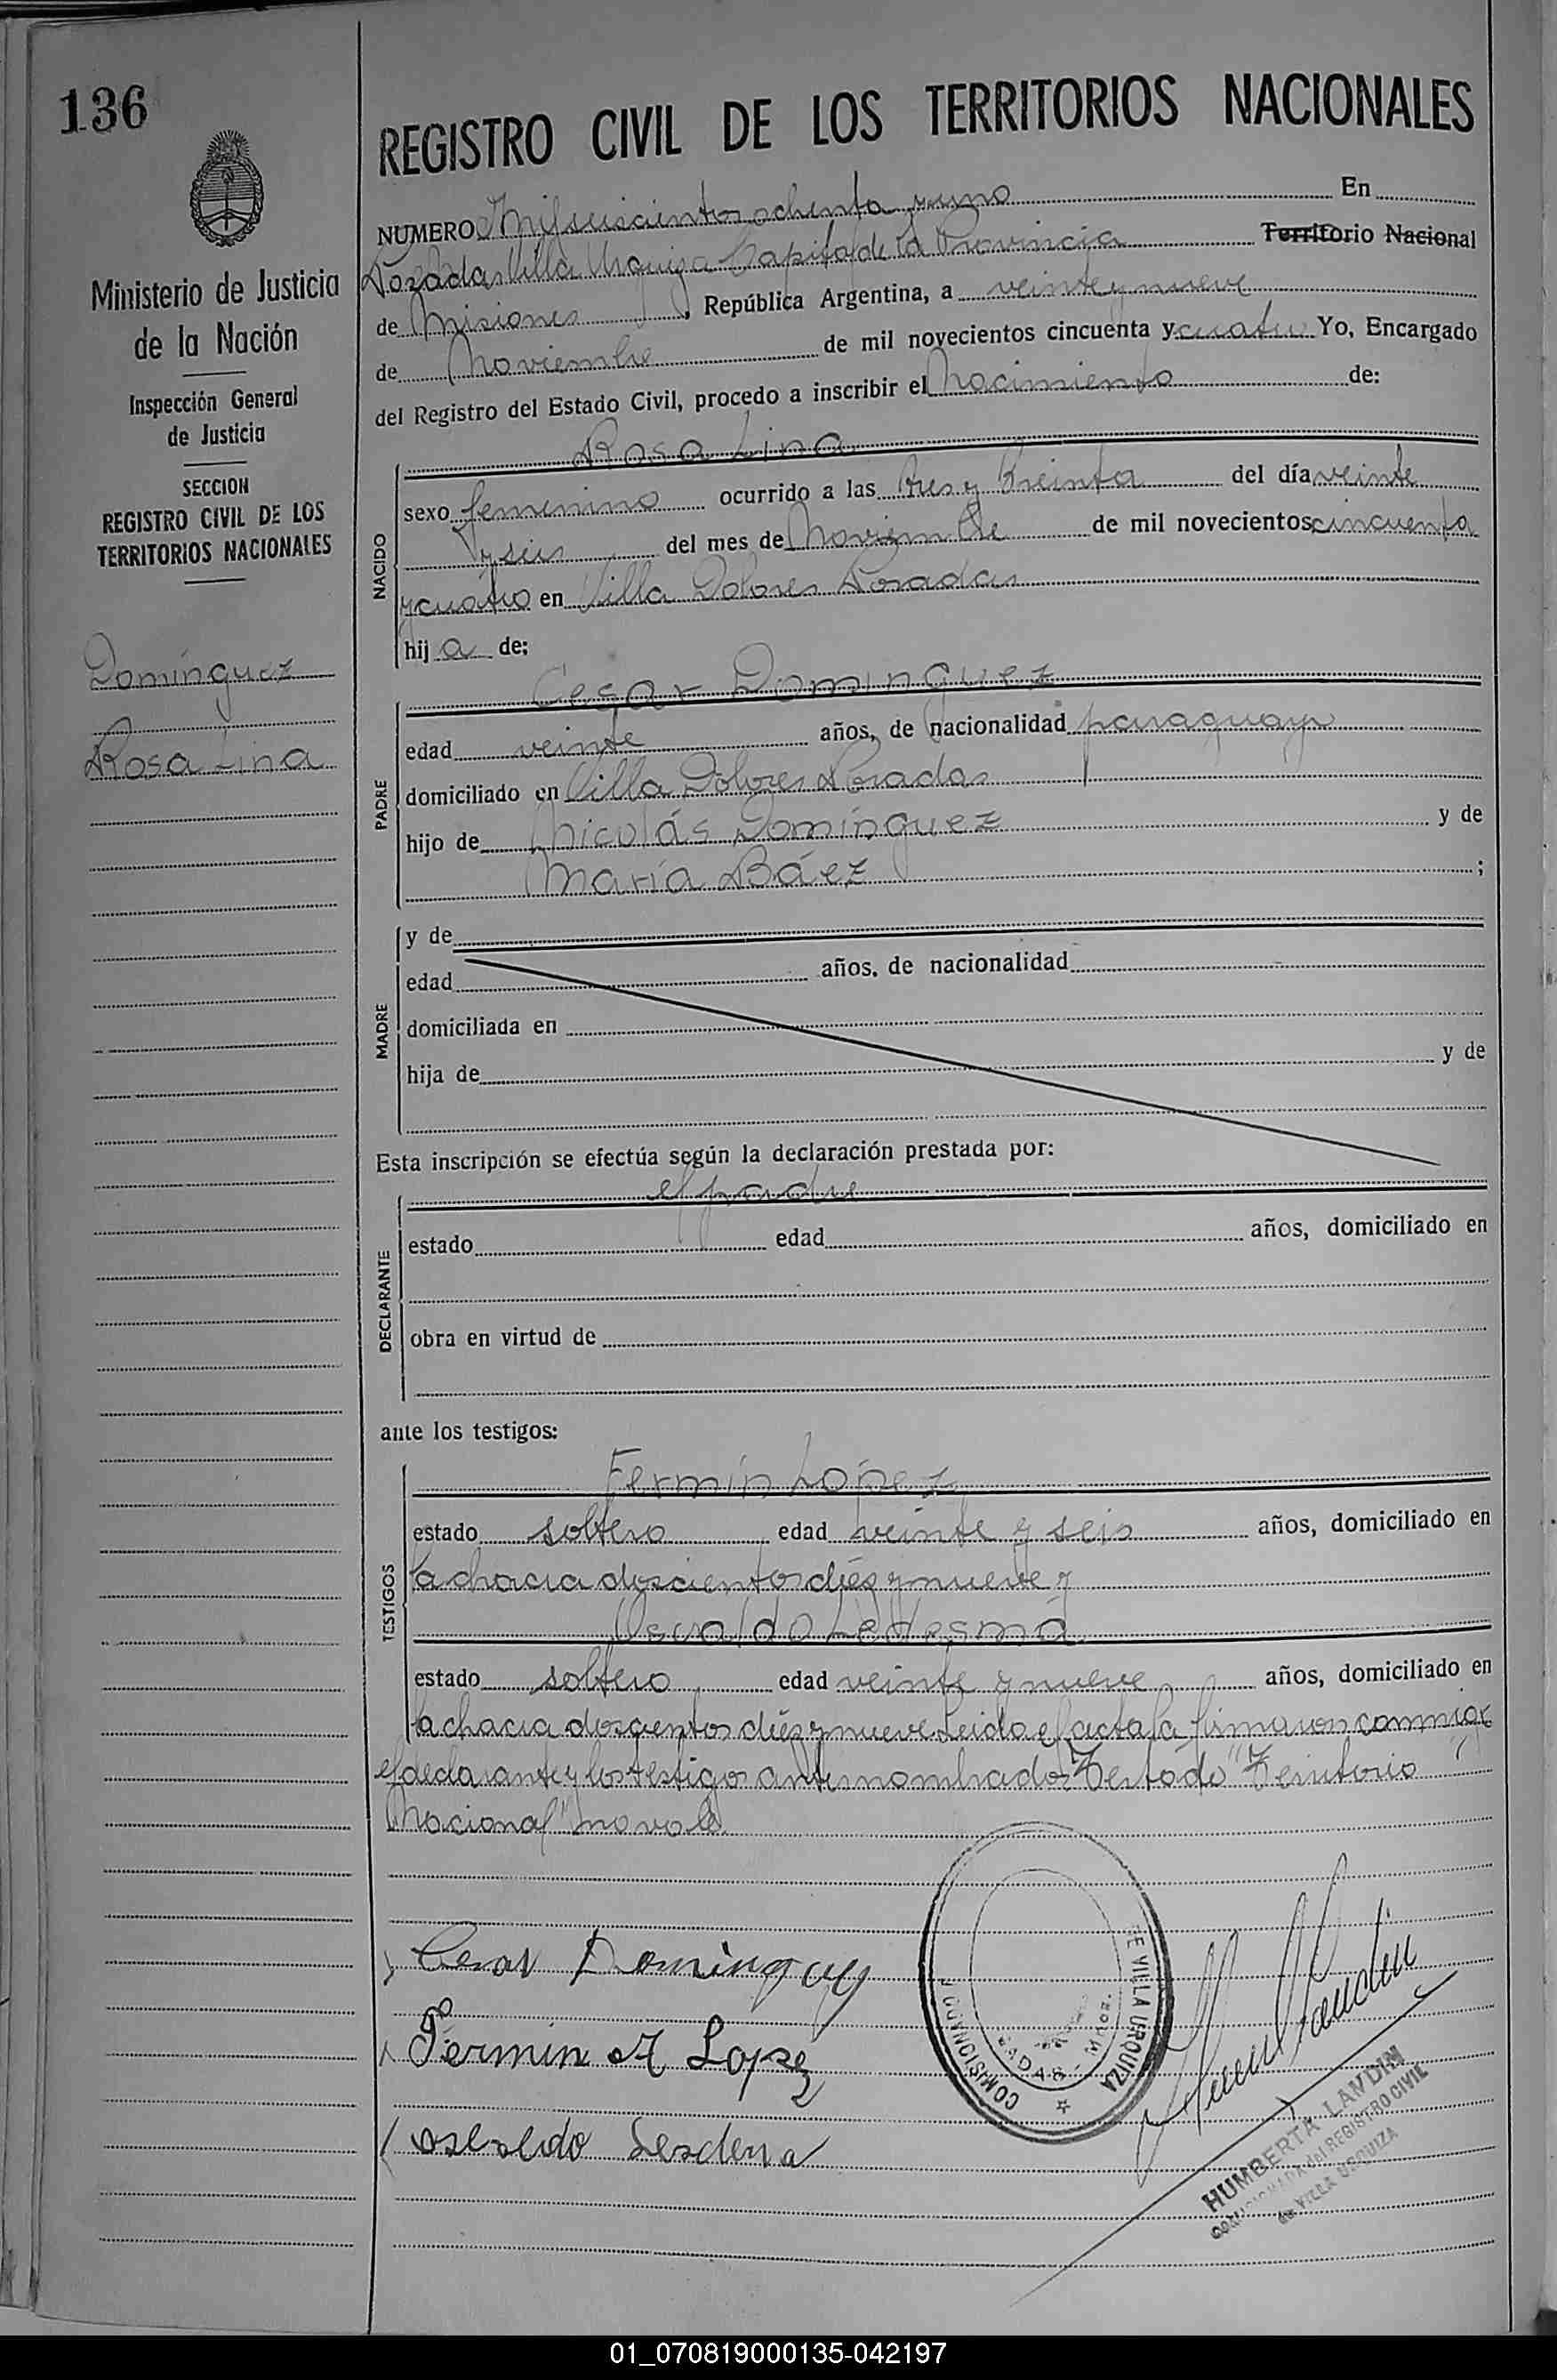 136
REGISTRO CIVIL DE LOS TERRITORIOS NACIONALES
Ministerio de Justicia
de la Nación
Inspección General
de Justicia
SECCION
REGISTRO CIVIL DE LOS
TERRITORIOS NACIONALES
Domínguez
Rosa Lina
NUMERO Mil seiscientos ochenta y uno En
Posadas Villa Urquiza Capital de la Provincia Territorio Nacional
de Misiones, República Argentina, a veinte y nueve
de Noviembre de mil novecientos cincuenta y cuatro Yo, Encargado
del Registro del Estado Civil, procedo a inscribir el Nacimiento de:
Rosa Lina
NACIDO
sexo femenino ocurrido a las tres y treinta del día veinte
y seis del mes de Noviembre de mil novecientos cincuenta
y cuatro en Villa Dolores Posadas
hij a de;
Cesar Dominguez
PADRE
edad veinte años, de nacionalidad paraguayo
domiciliado en Villa Dolores Posadas
hijo de Nicolás Domínguez y de
María Báez ;
MADRE
y de
edad años, de nacionalidad
domiciliada en
hija de y de
Esta inscripción se efectúa según la declaración prestada por:
el padre
DECLARANTE
estado edad años, domiciliado en
obra en virtud de
ante los testigos:
Fermin Lopez
TESTIGOS
estado soltero edad veinte y seis años, domiciliado en
la chacra doscientos diéz y nueve y
Osvaldo Ledesma
estado soltero edad veinte y nueve años, domiciliado en
la chacra doscientos diéz y nueve Leida el acta la firmaron conmigo
el declarante y los testigos antes nombrados Testado "Territorio
Nacional" no vale
Cesar Dominguez
Fermin A Lopez
COMISIONADO DE VILLA URQUIZA
HUMBERTA LANDIN
COMISIONADA del REGISTRO CIVIL
de VILLA URQUIZA
01_070819000135-042197